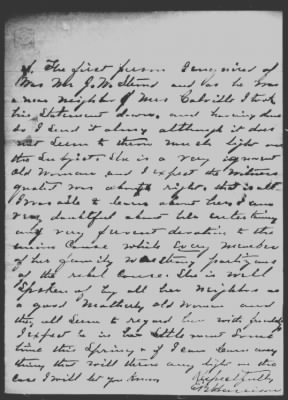 of. The first person I enquired of
was Mr J. W. Stone and as he was
a near neighbor of Mrs Calvilles I took
his Statement down. and having done
so I Send it along although it does
not Seem to throw much light on
the Subject. She is a very ignorant
Old Woman and I expect the witness
quoted was right. that is all
I was able to learn about her, I am
very doubtful about her entertaining
any very fervent devotion to the
union Cause while Every Member
of her family was Strong partisans
of the rebel Cause. She is well
Spoken of by all her Neighbors as
a good Motherly old Woman and
they all Seem to regard her with
I expect to in her Settlement Some
time this Spring & if I can learn any
thing that will throw any light on the
case I will let you Know
Respectfully